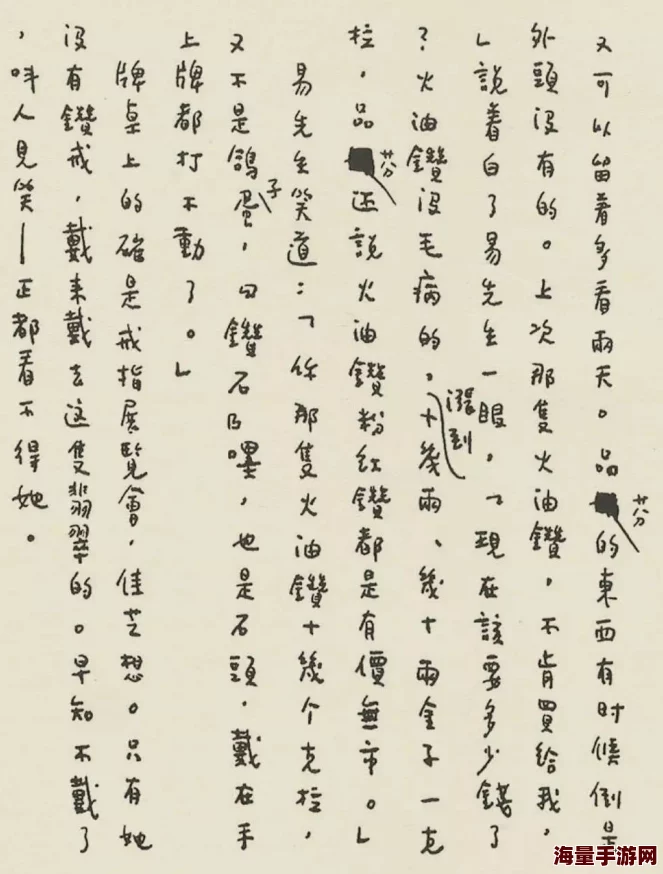 又可以留着多看兩天。品芬的東西有时候倒是
外頭沒有的。上次那隻火油鑽，不肯買給我，
」說着白了易先生一眼，「現在該要多少錢了
？火油鑽沒毛病的，漲到十幾兩、幾十兩金子一克
拉，品芬還說火油鑽粉紅鑽都是有價無市。」
易先生笑道：「你那隻火油鑽十幾个克拉，
又不是鴿子蛋，曰鑽石㠯嘿，也是石頭，戴在手
上牌都打不動了。」
牌桌上的確是戒指展覽會，佳芝想。只有她
沒有鑽戒，戴来戴去這隻翡翠的。早知不戴了
，叫人見笑—正都看不得她。
海量手游网